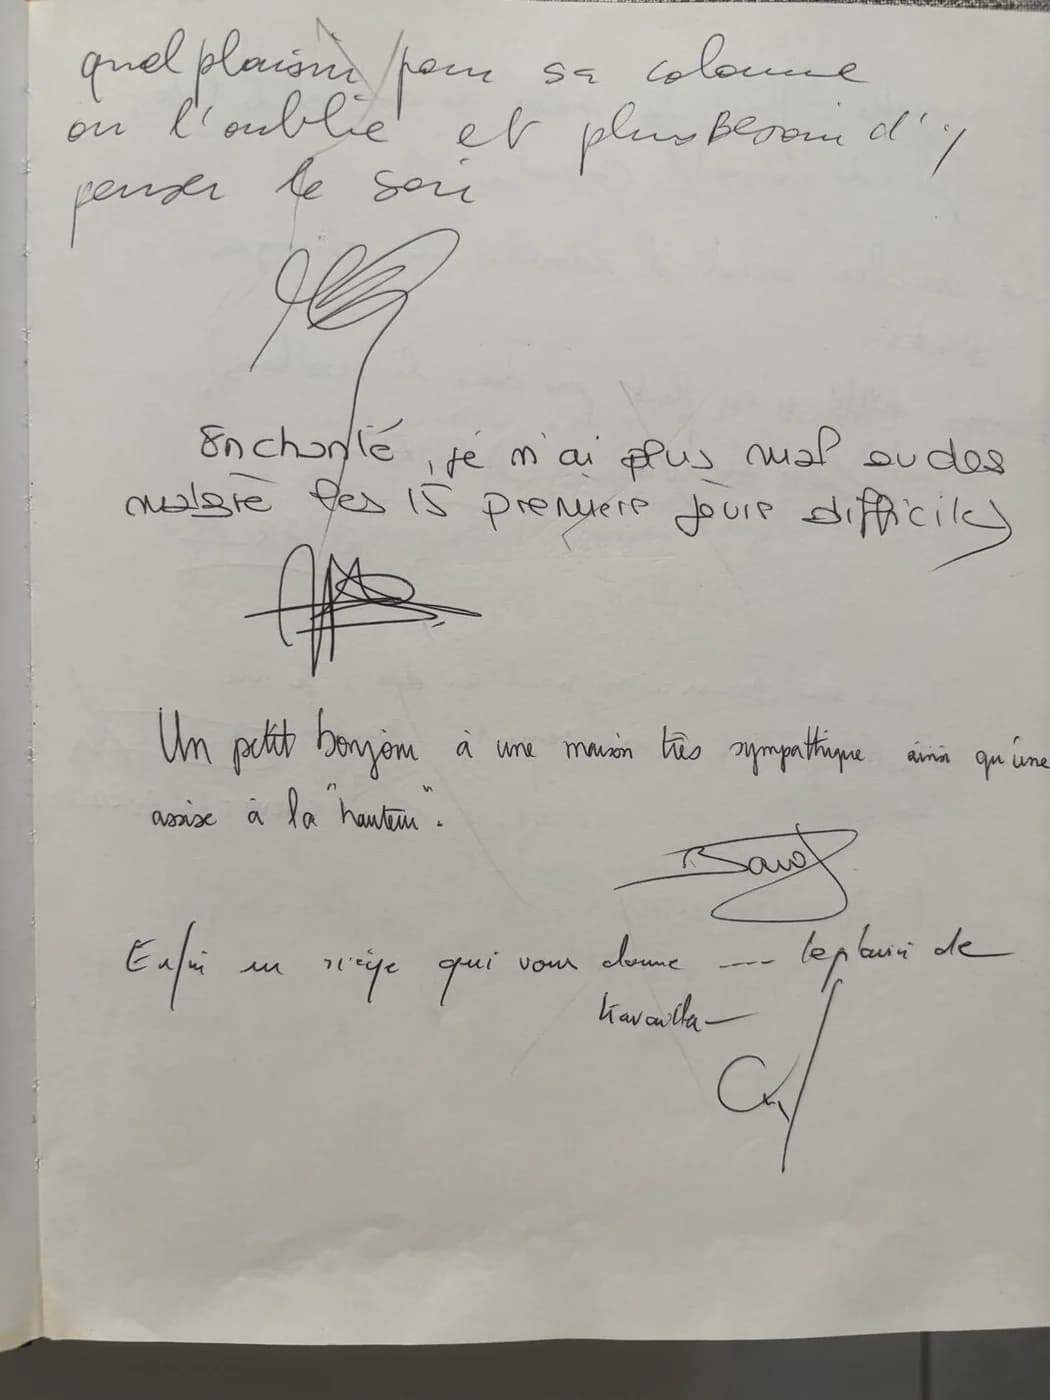 quel plaisir pour sa colonne
on l'oublie et plus Besoin d'y
penser le soir
Enchanté, je n'ai plus mal au dos
malgré les 15 premiere jours difficiles
Un petit bonjour à une maison très sympathique ainsi qu'une
assise à la "hauteur".
Enfin un siège qui vous donne --- le plaisir de
travailler